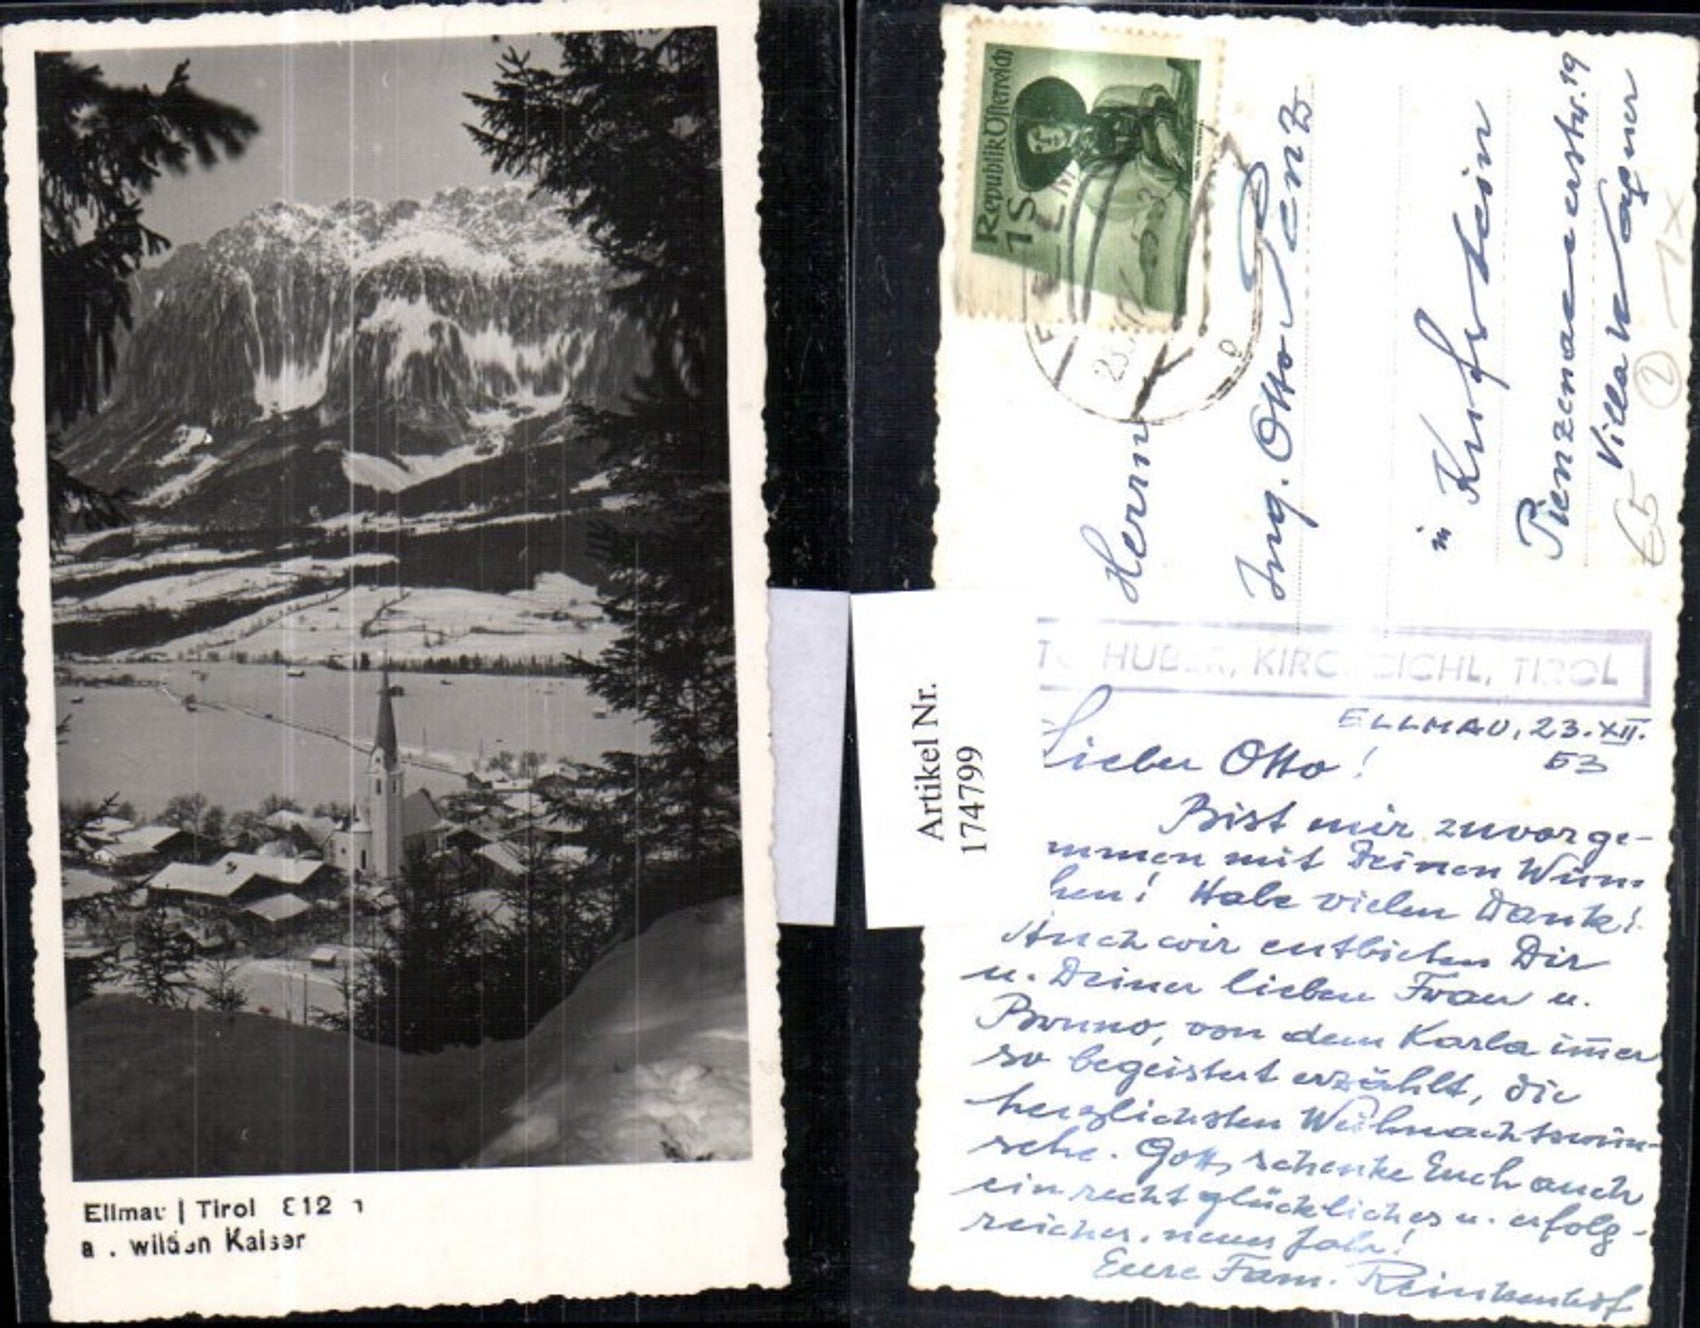 Ellmau | Tirol 812 m
a. wilden Kaiser
Republik Österreich
1S
Herrn
Ing. Otto Penz
in Kufstein
Pienzenauerstr. 19
Villa Wagner
Artikel Nr.
174799
HUBER, KIRCHBICHL, TIROL
ELLMAU, 23.XII.
53
Lieber Otto!
Bist mir zuvorge-
mmen mit Deinen Wün-
hen! Habe vielen Dank!
Auch wir entbieten Dir
u. Deiner lieben Frau u.
Bruno, von dem Karla im̅er
so begeistert erzählt, die
herzlichsten Weihnachtswün-
sche. Gott schenke Euch auch
ein recht glückliches u. erfolg-
reiches neues Jahr!
Eure Fam.